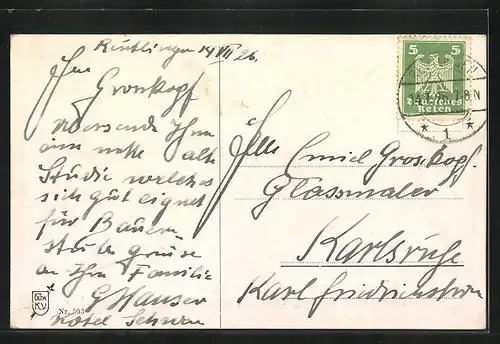 Reutlingen 14 VII 26.
Herr
Groskopf
übersende Ihnen
eine nette alte
Studie welches
sich gut eignet
für Bauern
stube grüße
an Ihre Familie
G Hauser
Hotel Schwan
Nr. 503
5 5
Deutsches
Reich
8 N
* 1 *
Emil Groskopf.
Glassmaler
Karlsruhe
Karl Friedrichstrasse